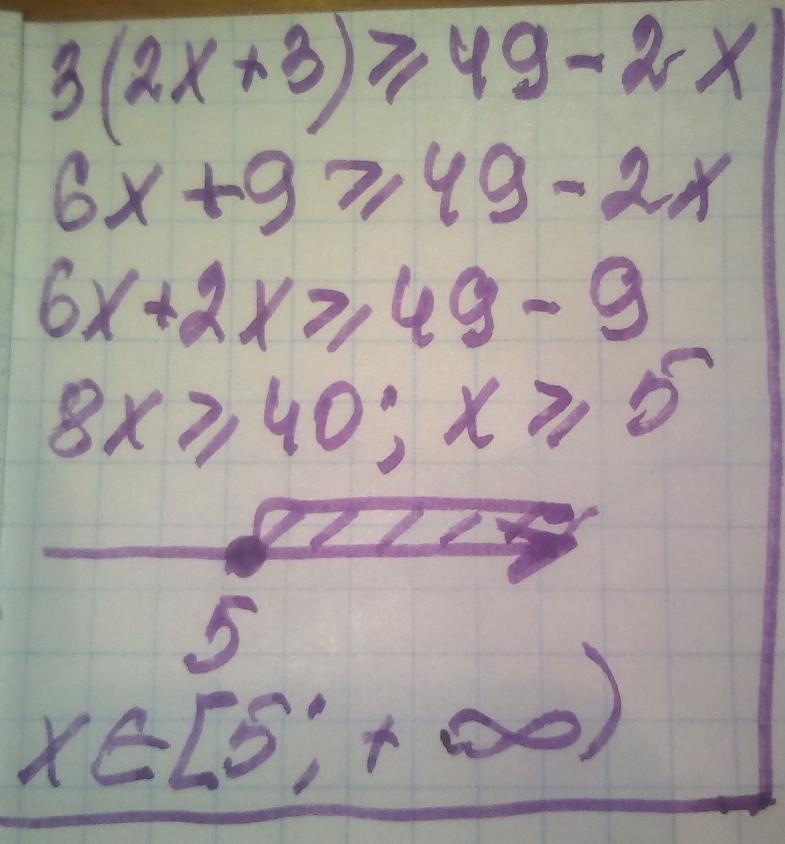 3(2x+3)⩾49-2x
6x+9⩾49-2x
6x+2x⩾49-9
8x⩾40; x⩾5
5
x∈[5;+∞)